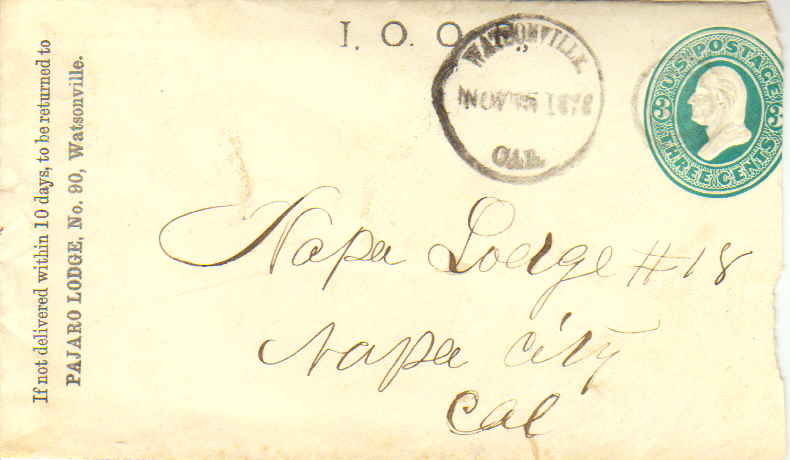 I. O. O. F.
WATSONVILLE.
NOV 1878
CAL.
U.S. POSTAGE
3 3
THREE CENTS
If not delivered within 10 days, to be returned to
PAJARO LODGE, No. 90, Watsonville.
Napa Lodge #18
Napa City
Cal